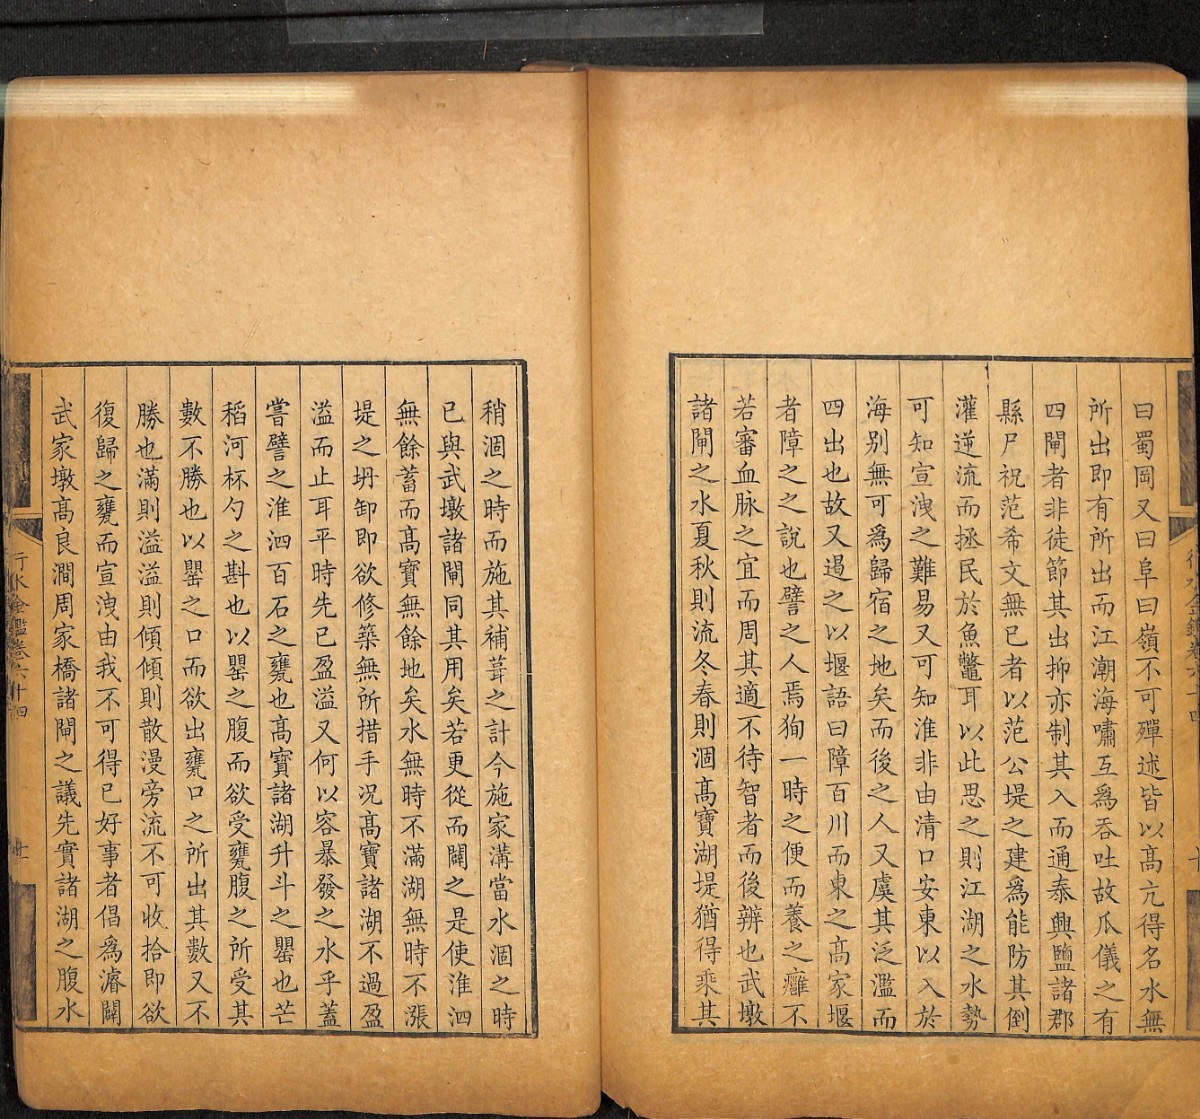 曰蜀岡又曰阜曰嶺不可殫述皆以高亢得名水無
所出即有所出而江潮海嘯互爲吞吐故瓜儀之有
四閘者非徒節其出抑亦制其入而通泰興鹽諸郡
縣尸祝范希文無已者以范公堤之建爲能防其倒
灌逆流而拯民於魚鼈耳以此思之則江湖之水勢
可知宣洩之難易又可知淮非由清口安東以入於
海别無可爲歸宿之地矣而後之人又虞其泛濫而
四出也故又遏之以堰語曰障百川而東之高家堰
者障之之說也譬之人焉狥一時之便而養之癰不
若審血脉之宜而周其適不待智者而後辨也武墩
諸閘之水夏秋則流冬春則涸高寶湖堤猶得乘其
稍涸之時而施其補葺之計今施家溝當水涸之時
已與武墩諸閘同其用矣若更從而闢之是使淮泗
無餘蓄而高寶無餘地矣水無時不滿湖無時不漲
堤之坍卸即欲修築無所措手况高寶諸湖不過盈
溢而止耳平時先已盈溢又何以容暴發之水乎蓋
嘗譬之淮泗百石之甕也高寶諸湖升斗之罌也芒
稻河杯勺之斟也以罌之腹而欲受甕腹之所受其
數不勝也以罌之口而欲出甕口之所出其數又不
勝也滿則溢溢則傾傾則散漫旁流不可收拾即欲
復歸之甕而宣洩由我不可得已好事者倡爲濬闢
武家墩高良澗周家橋諸閘之議先實諸湖之腹水
行水金鑑卷六十四